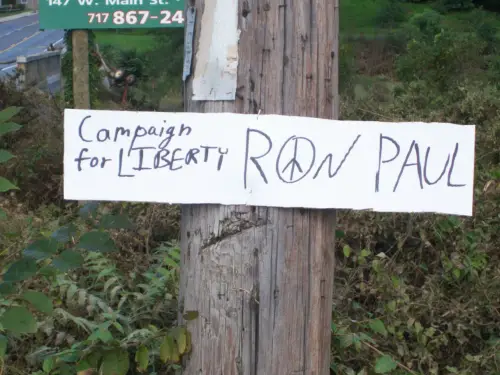 147 W. Main St.
717 867-24
Campaign
for LIBERTY
RON PAUL